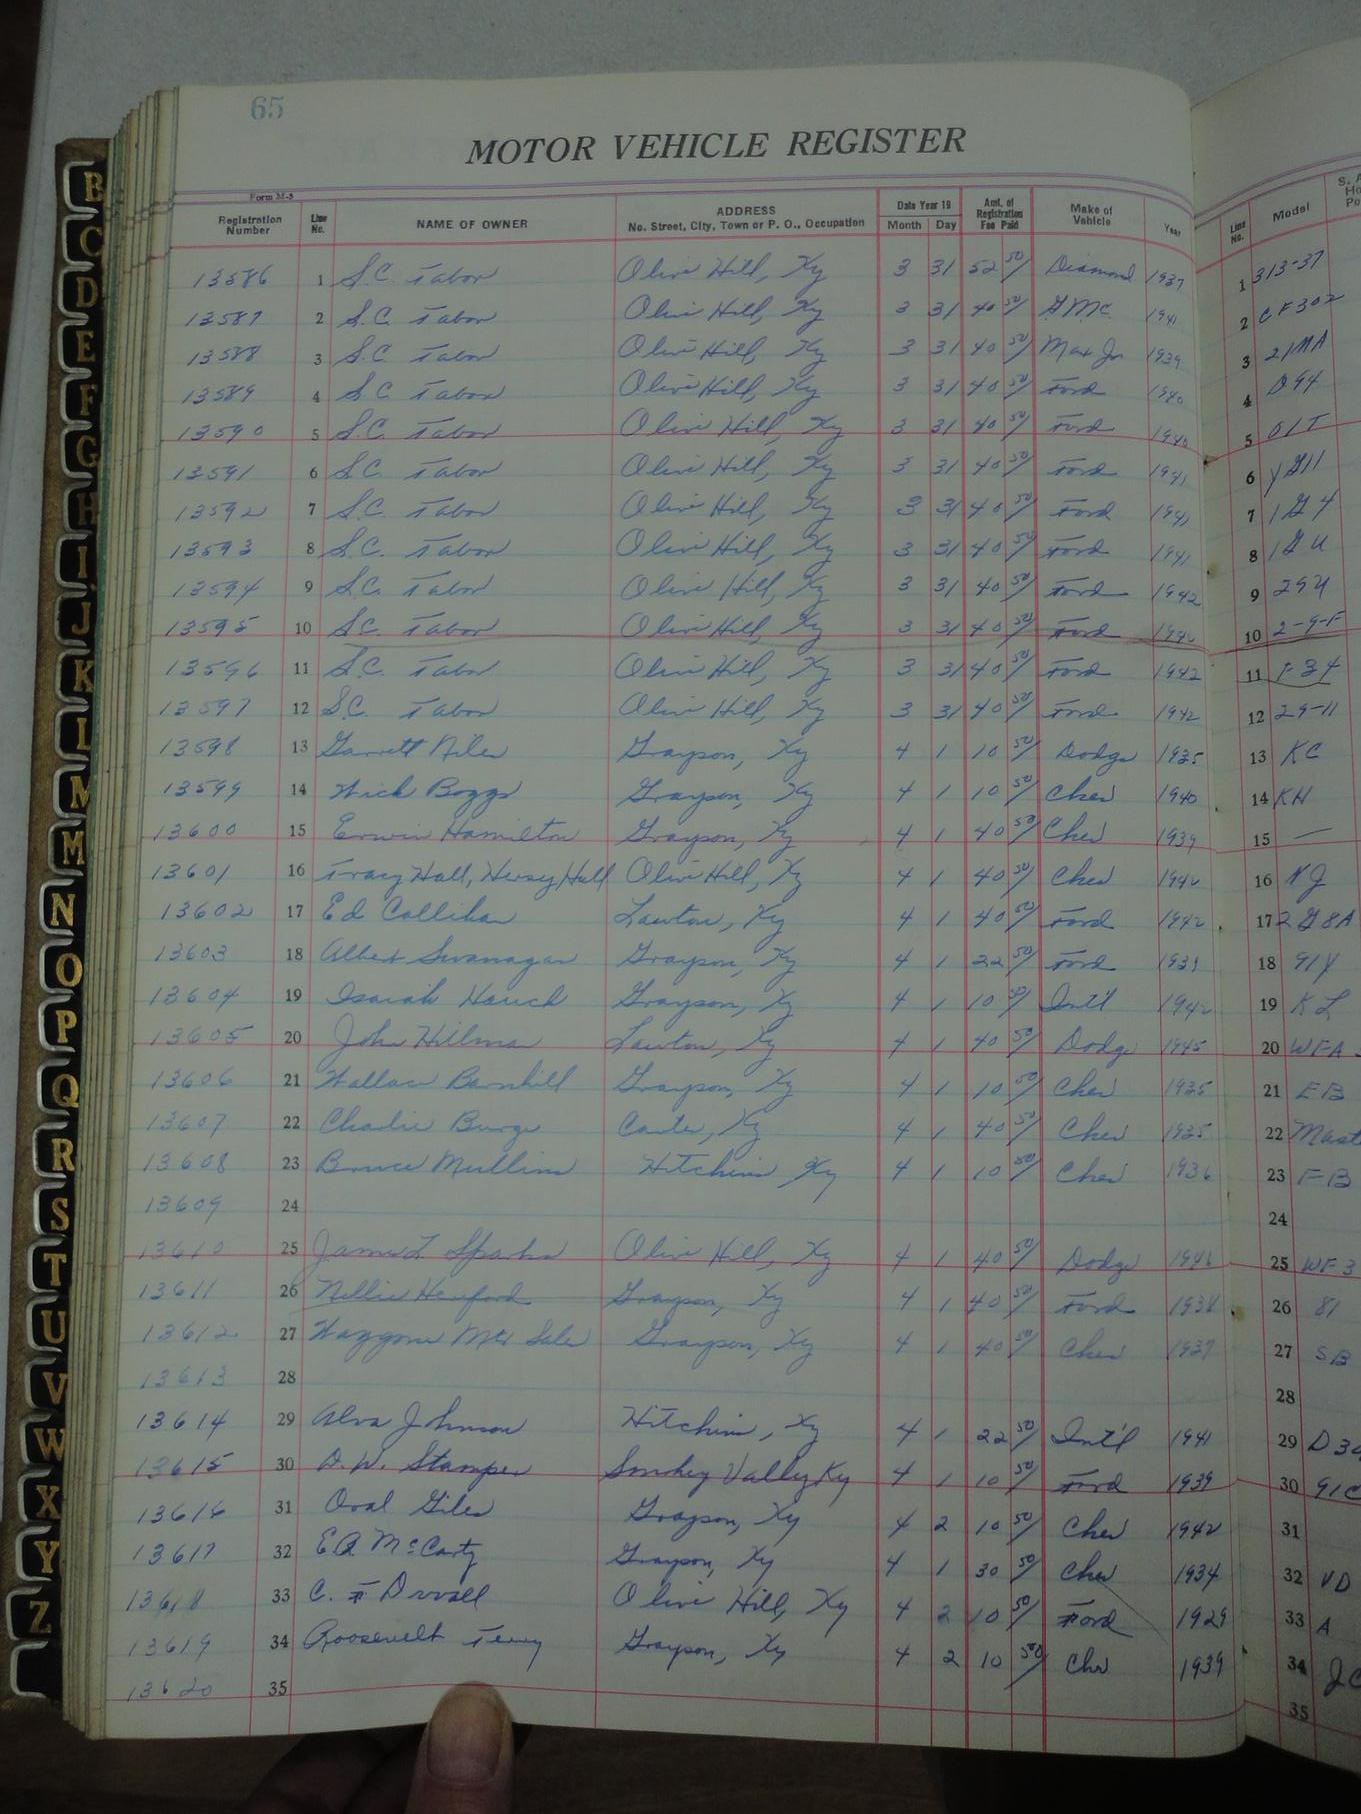 65
MOTOR VEHICLE REGISTER
Form M-5
Registration Number Line No. NAME OF OWNER ADDRESS No. Street, City, Town or P. O., Occupation Date Year 19 Month Day Amt. of Registration Fee Paid Make of Vehicle Year Line No. Model
13586 1 S.C. Tabor Olive Hill, Ky 3 31 52 50/ Diamond 1937 1 313-37
13587 2 S.C. Tabor Olive Hill, Ky 3 31 40 50/ GMC 1941 2 CF302
13588 3 S.C. Tabor Olive Hill, Ky 3 31 40 50/ Mac Jr 1939 3 21MA
13589 4 S.C. Tabor Olive Hill, Ky 3 31 40 50/ Ford 1940 4 094
13590 5 S.C. Tabor Olive Hill, Ky 3 31 40 50/ Ford 1940 5 01T
13591 6 S.C. Tabor Olive Hill, Ky 3 31 40 50/ Ford 1941 6
13592 7 S.C. Tabor Olive Hill, Ky 3 31 40 50/ Ford 1941 7 1G4
13593 8 S.C. Tabor Olive Hill, Ky 3 31 40 50/ Ford 1941 8 1GU
13594 9 S.C. Tabor Olive Hill, Ky 3 31 40 50/ Ford 1942 9 29U
13595 10 S.C. Tabor Olive Hill, Ky 3 31 40 50/ Ford 1942 10 2-9-F
13596 11 S.C. Tabor Olive Hill, Ky 3 31 40 50/ Ford 1942 11 F34
13597 12 S.C. Tabor Olive Hill, Ky 3 31 40 50/ Ford 1942 12 29-11
13598 13 Garrett Niles Grayson, Ky 4 1 10 50/ Dodge 1935 13 KC
13599 14 Wick Boggs Grayson, Ky 4 1 10 50/ Chev 1940 14 KH
13600 15 Erwin Hamilton Grayson, Ky 4 1 40 50/ Chev 1939 15 —
13601 16 Tracy Hall, Hersey Hall Olive Hill, Ky 4 1 40 50/ Chev 1942 16 NJ
13602 17 Ed Callihan Lawton, Ky 4 1 40 50/ Ford 1942 17 2G8A
13603 18 Albert Swanagan Grayson, Ky 4 1 22 50/ Ford 1939 18 91Y
13604 19 Isaiah Hauck Grayson, Ky 4 1 10 50/ Int'l 1942 19 KL
13605 20 John Hillman Lawton, Ky 4 1 40 50/ Dodge 1945 20 WFA
13606 21 Wallace Barnhill Grayson, Ky 4 1 10 50/ Chev 1935 21 EB
13607 22 Charlie Burge Carter, Ky 4 1 40 50/ Chev 1935 22 Mast
13608 23 Bruce Mullins Hitchins, Ky 4 1 10 50/ Chev 1936 23 FB
13609 24 24
13610 25 James L Sparks Olive Hill, Ky 4 1 40 50/ Dodge 1946 25 WF3
13611 26 Nellie Grayson, Ky 4 1 40 50/ Ford 1938 26 81
13612 27 Waggoner Mtr Sales Grayson, Ky 4 1 40 50/ Chev 1937 27 SB
13613 28 28
13614 29 Alva Johnson Hitchins, Ky 4 1 22 50/ Int'l 1941 29 D30
13615 30 D.W. Stamper Smokey Valley Ky 4 1 10 50/ Ford 1939 30 91C
13616 31 Oval Giles Grayson, Ky 4 2 10 50/ Chev 1942 31
13617 32 E.A. McCarty Grayson, Ky 4 1 30 50/ Chev 1934 32 VD
13618 33 C. F Duvall Olive Hill, Ky 4 2 10 50/ Ford 1929 33 A
13619 34 Roosevelt Terry Grayson, Ky 4 2 10 50/ Che 1939 34 JC
13620 35 35
B
C
D
E
F
G
H
I
J
K
L
M
M
N
O
P
Q
R
S
T
U
V
W
X
Y
Z